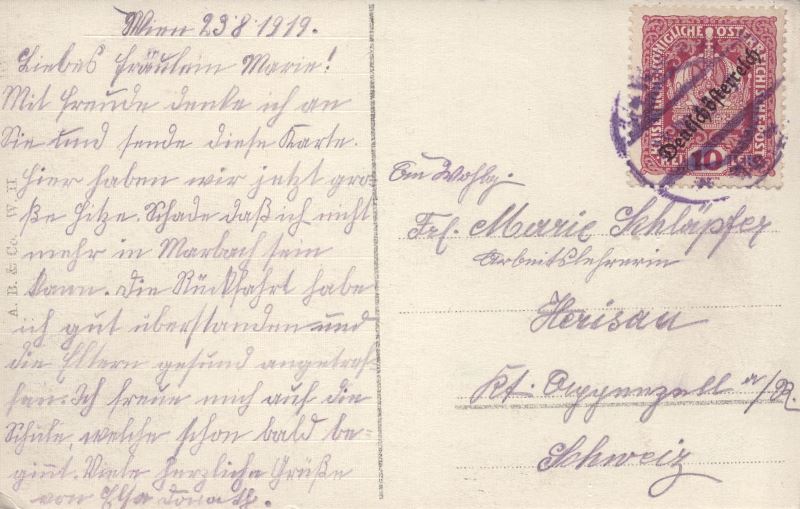 Wien 23 8 1919.
Liebes Fräulein Marie!
Mit Freude denke ich an
Sie und sende diese Karte.
Hier haben wir jetzt gro-
ße Hitze. Schade daß ich nicht
mehr in Marbach sein
kann. Die Rückfahrt habe
ich gut überstanden und
die Eltern gesund angetrof-
fen. Ich freue mich auf die
Schule, welche schon bald be-
ginnt. Viele herzliche Grüße
von Elsa Donath.
A. B. & Co. W. II.
KAISERLICHE KÖNIGLICHE ÖSTERREICHISCHE POST
Deutschösterreich
10
An Wohlg.
Frl. Marie Schläpfer
Arbeitslehrerin
Herisau
Kt. Appenzell a/R.
Schweiz